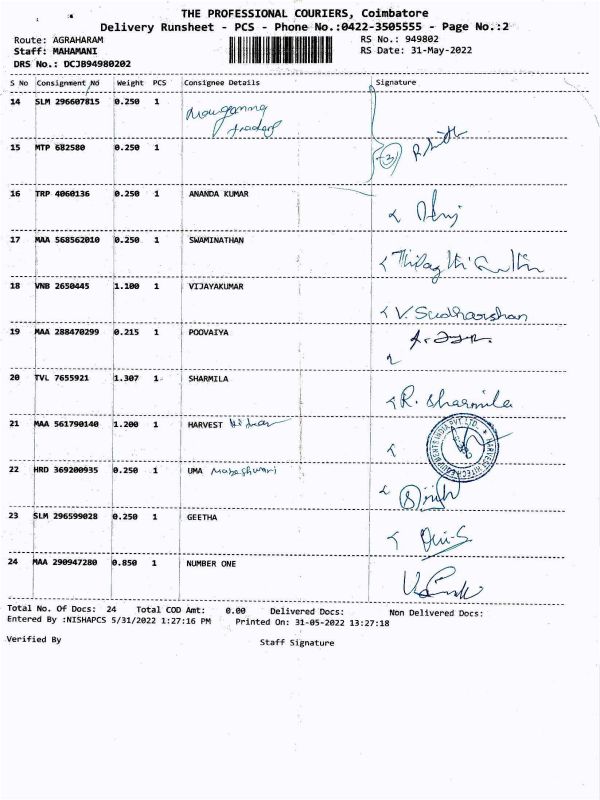 THE PROFESSIONAL COURIERS, Coimbatore
Delivery Runsheet - PCS - Phone No.:0422-3505555 - Page No.:2
Route: AGRAHARAM RS No.: 949802
Staff: MAHAMANI RS Date: 31-May-2022
DRS No.: DCJB94980202
S No Consignment No Weight PCS Consignee Details Signature
14 SLM 296607815 0.250 1
15 MTP 682580 0.250 1
16 TRP 4060136 0.250 1 ANANDA KUMAR
17 MAA 568562010 0.250 1 SWAMINATHAN
18 VNB 2650445 1.100 1 VIJAYAKUMAR V. Sudharshan
19 MAA 288470299 0.215 1 POOVAIYA
20 TVL 7655921 1.307 1 SHARMILA R. Sharmila
21 MAA 561790140 1.200 1 HARVEST
22 HRD 369200935 0.250 1 UMA Mageshwari
23 SLM 296599028 0.250 1 GEETHA
24 MAA 290947280 0.850 1 NUMBER ONE
Total No. Of Docs: 24 Total COD Amt: 0.00 Delivered Docs: Non Delivered Docs:
Entered By :NISHAPCS 5/31/2022 1:27:16 PM Printed On: 31-05-2022 13:27:18
Verified By Staff Signature